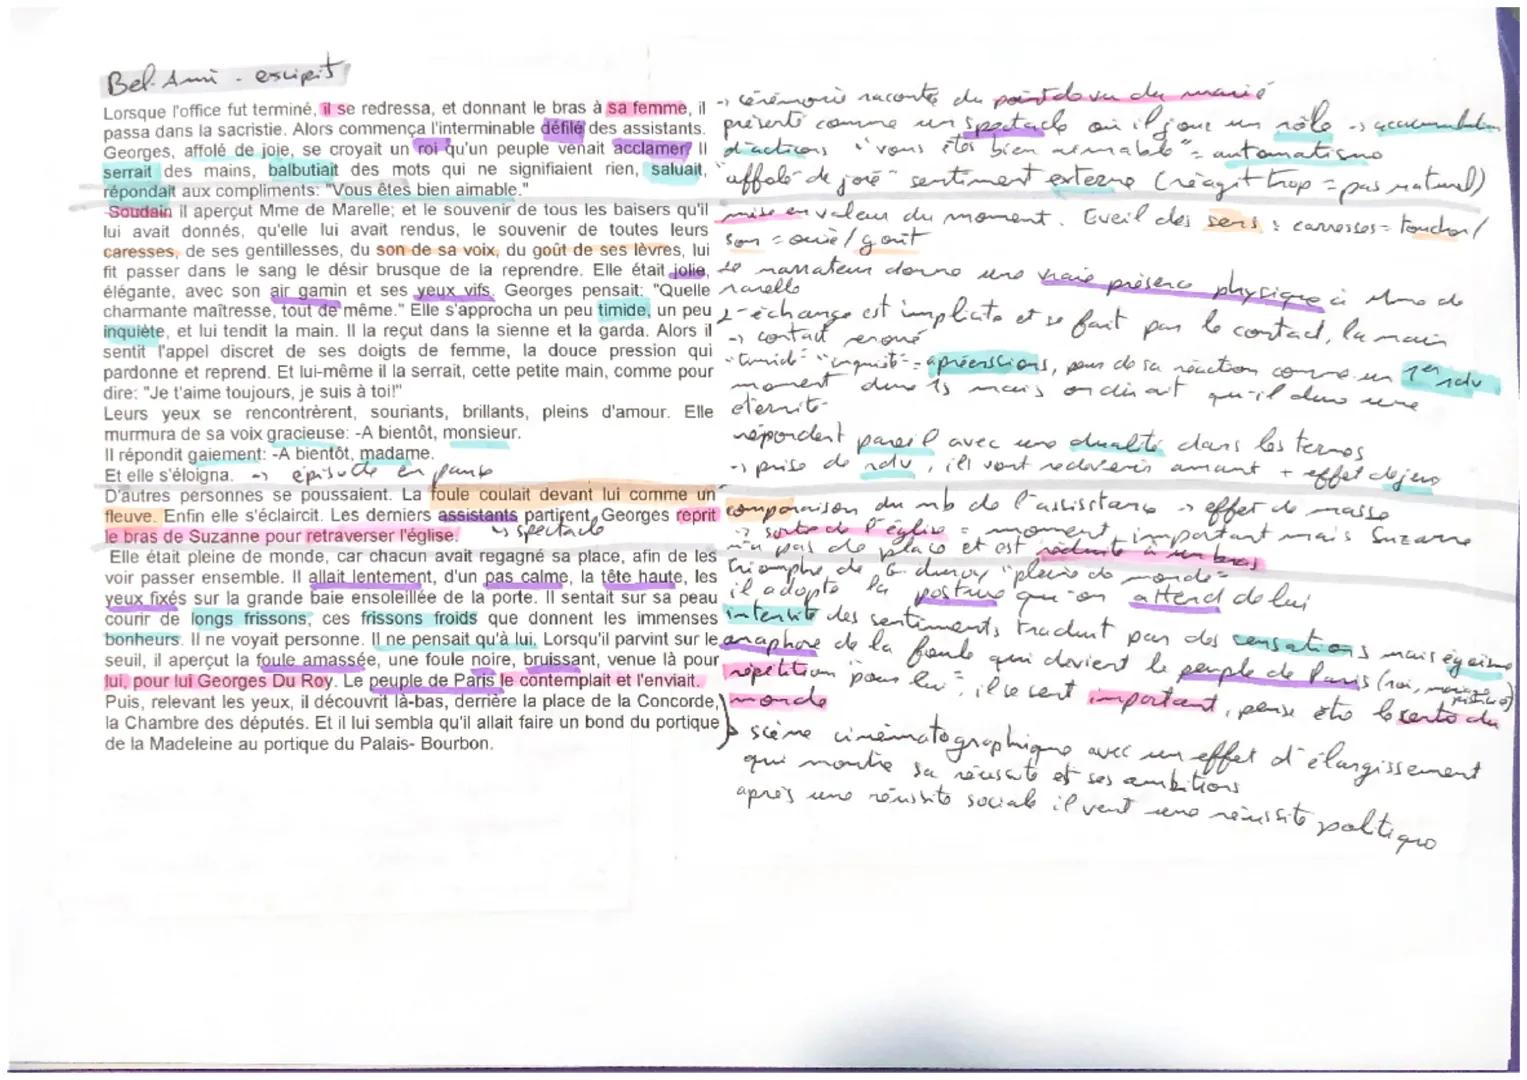 Bel-Ami - excipit
Lorsque l'office fut terminé, il se redressa, et donnant le bras à sa femme, il
passa dans la sacristie. Alors commença l'interminable défilé des assistants.
Georges, affolé de joie, se croyait un roi qu'un peuple venait acclamer. Il
serrait des mains, balbutiait des mots qui ne signifiaient rien, saluait,
répondait aux compliments: "Vous êtes bien aimable."
Soudain il aperçut Mme de Marelle; et le souvenir de tous les baisers qu'il
lui avait donnés, qu'elle lui avait rendus, le souvenir de toutes leurs
caresses, de ses gentillesses, du son de sa voix, du goût de ses lèvres, lui
fit passer dans le sang le désir brusque de la reprendre. Elle était jolie,
élégante, avec son air gamin et ses yeux vifs. Georges pensait: "Quelle
charmante maîtresse, tout de même." Elle s'approcha un peu timide, un peu
inquiète, et lui tendit la main. Il la reçut dans la sienne et la garda. Alors il
sentit l'appel discret de ses doigts de femme, la douce pression qui
pardonne et reprend. Et lui-même il la serrait, cette petite main, comme pour
dire: "Je t'aime toujours, je suis à toi!"
Leurs yeux se rencontrèrent, souriants, brillants, pleins d'amour. Elle
murmura de sa voix gracieuse: -A bientôt, monsieur.
Il répondit gaiement: -A bientôt, madame.
Et elle s'éloigna. -> épisode en pause
D'autres personnes se poussaient. La foule coulait devant lui comme un
fleuve. Enfin elle s'éclaircit. Les derniers assistants partirent. Georges reprit
le bras de Suzanne pour retraverser l'église. ↳ spectacle
Elle était pleine de monde, car chacun avait regagné sa place, afin de les
voir passer ensemble. Il allait lentement, d'un pas calme, la tête haute, les
yeux fixés sur la grande baie ensoleillée de la porte. Il sentait sur sa peau
courir de longs frissons, ces frissons froids que donnent les immenses
bonheurs. Il ne voyait personne. Il ne pensait qu'à lui. Lorsqu'il parvint sur le
seuil, il aperçut la foule amassée, une foule noire, bruissant, venue là pour
lui, pour lui Georges Du Roy. Le peuple de Paris le contemplait et l'enviait.
Puis, relevant les yeux, il découvrit là-bas, derrière la place de la Concorde,
la Chambre des députés. Et il lui sembla qu'il allait faire un bond du portique
de la Madeleine au portique du Palais- Bourbon.
-> cérémonie racontée du point de vu du marié
présenté comme un spectacle où il joue un rôle -> accumulation
d'actions "vous êtes bien aimable" = automatisme
"affolé de joie" sentiment externe (réagit trop = pas naturel)
mise en valeur du moment. Eveil des sens : caresses = toucher/
son = ouïe/goût
le narrateur donne une vraie présence physique à Mme de
Marelle
échange est implicite et se fait par le contact, la main
-> contact renoué
"timide" "inquiète" = , peur de sa réaction comme un 1er rdv
moment dure 1s mais on dirait qu'il dure une
éternité
répondent pareil avec une dualité dans les termes
-> prise de rdv, ils vont redevenir amant + effet de jeu
comparaison du nb de l'assistance -> effet de masse
-> sortie de l'église = moment important mais Suzanne
n'a pas de place et est réduite à un bras
triomphe de G. duroy "pleine de monde"
il adopte la posture qu'on attend de lui
intensité des sentiments traduit par des sensations mais égoïsme
anaphore de la foule qui devient le peuple de Paris (roi,
répétition "pour lui", il se sent important, pense être le centre du
monde
scène cinématographique avec un effet d'élargissement
qui montre sa réussite et ses ambitions
après une réussite sociale il veut une réussite politique